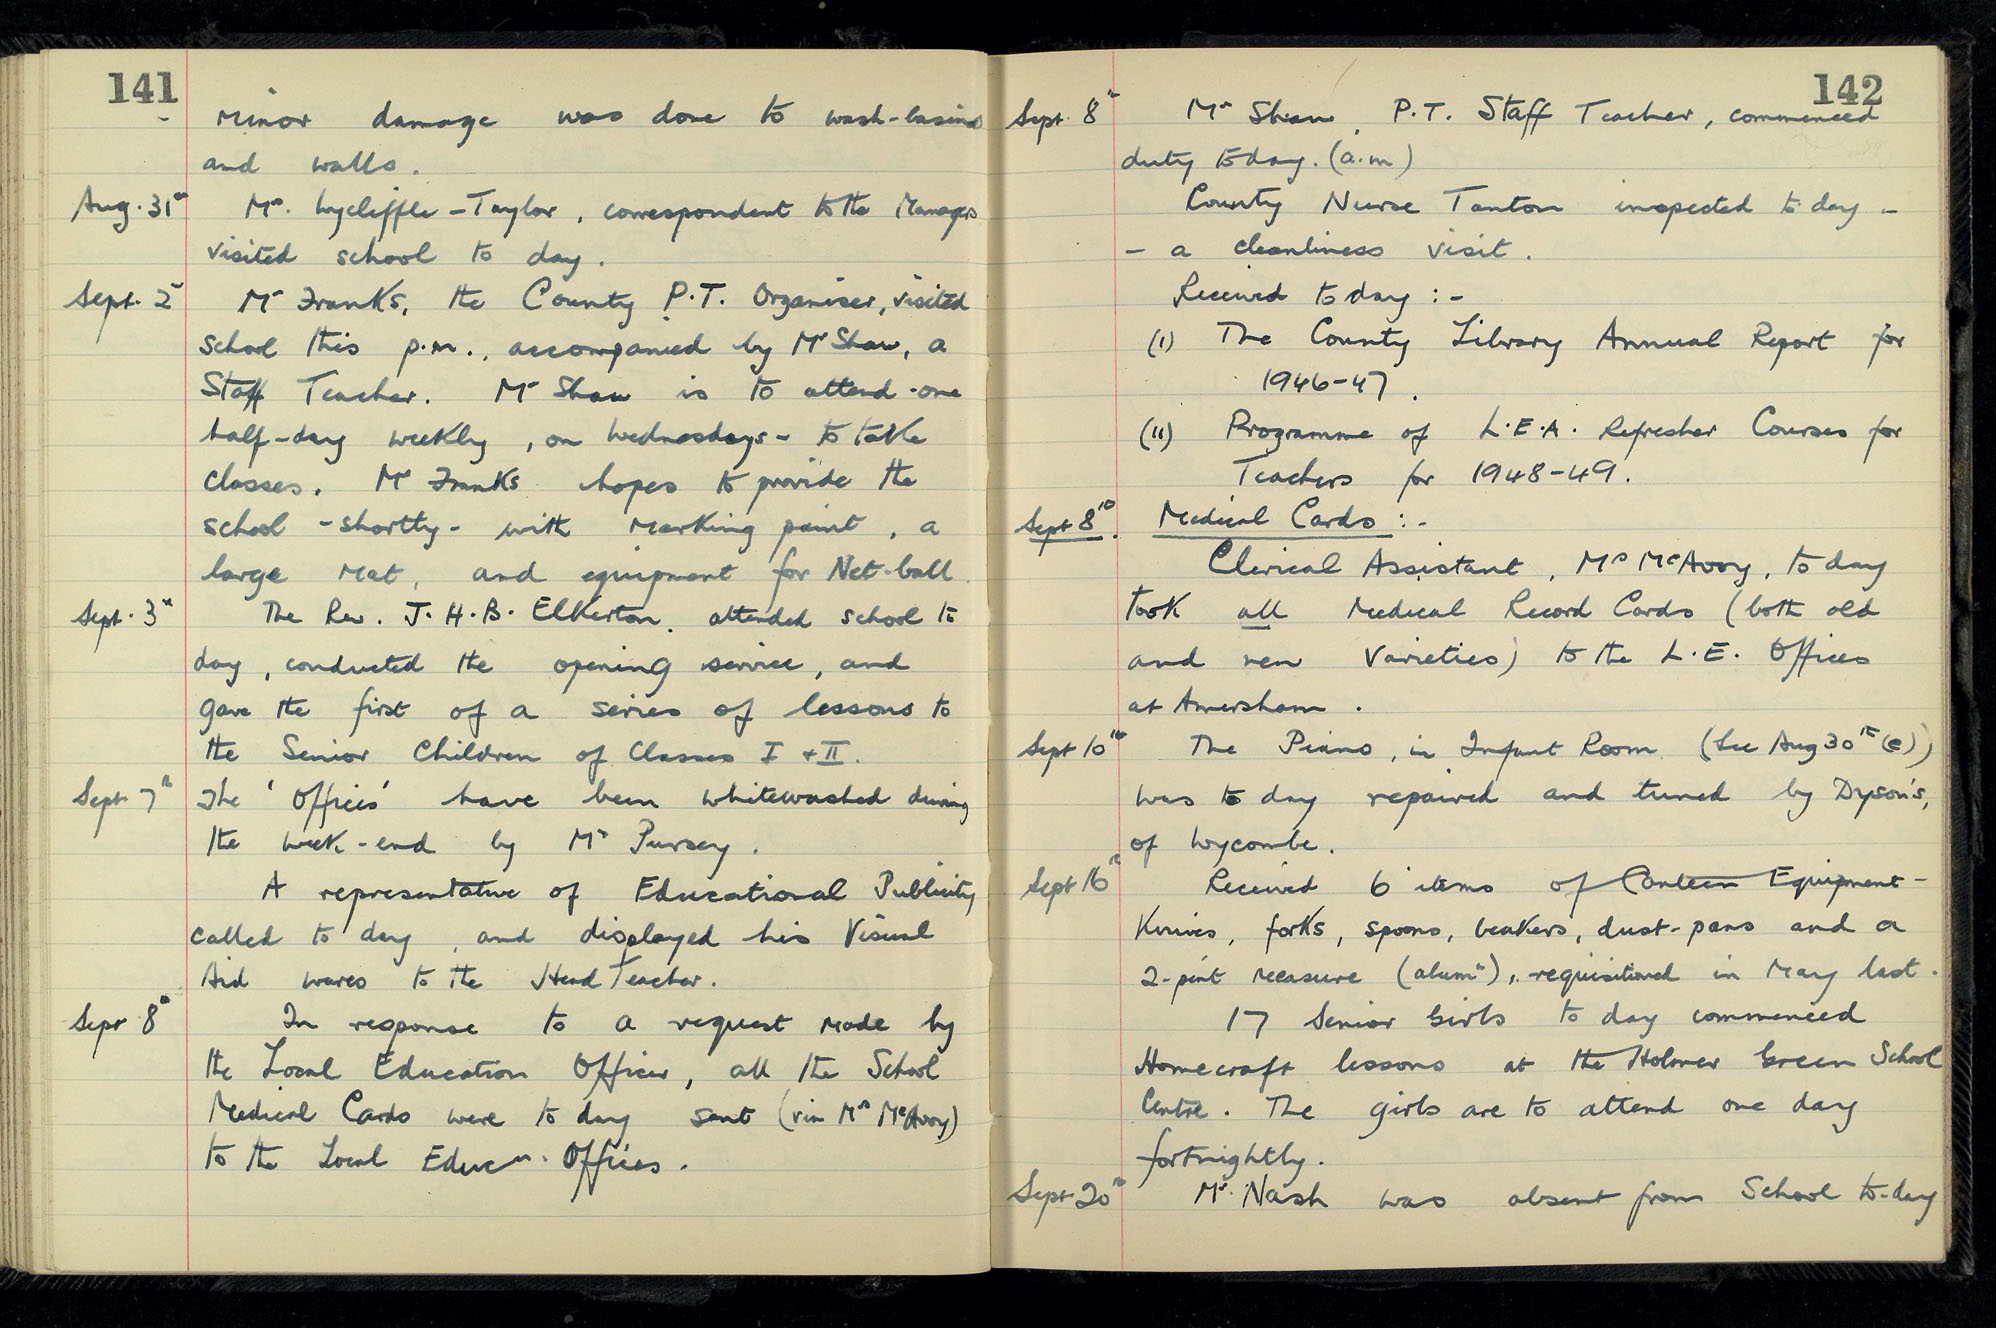 141
minor damage was done to wash-basins
and walls.
Aug. 31st Mr. Wycliffe-Taylor, correspondent to the Managers
visited school to day.
Sept. 2nd Mr Franks, the County P.T. Organiser, visited
school this p.m., accompanied by Mr Shaw, a
Staff Teacher. Mr Shaw is to attend one
half-day weekly, on Wednesdays - to take
classes. Mr Franks hopes to provide the
school - shortly - with marking paint, a
large mat, and equipment for Net-ball.
Sept. 3rd The Rev. J.H.B. Elkerton, attended school to
day, conducted the opening service, and
gave the first of a series of lessons to
the Senior Children of Classes I + II.
Sept. 7th The 'Offices' have been whitewashed during
the week-end by Mr Pursey.
A representative of Educational Publicity
called to day, and displayed his Visual
Aid wares to the Head Teacher.
Sept 8th In response to a request made by
the Local Education Officer, all the School
Medical Cards were to day sent (via Mrs McAvoy)
to the Local Educn. Offices.
142
Sept. 8th Mr Shaw, P.T. Staff Teacher, commenced
duty to day. (a.m)
County Nurse Tanton inspected to day -
- a cleanliness visit.
Received to day :-
(i) The County Library Annual Report for
1946-47.
(ii) Programme of L.E.A. Refresher Courses for
Teachers for 1948-49.
Sept 8th. Medical Cards :-
Clerical Assistant, Mrs McAvoy, to day
took all Medical Record Cards (both old
and new varieties) to the L.E. Offices
at Amersham.
Sept 10th The Piano, in Infant Room (See Aug 30th (e))
was to day repaired and tuned by Dyson's,
of Wycombe.
Sept 16th Received 6 items of Canteen Equipment -
Knives, forks, spoons, beakers, dust-pans and a
2-pint measure (alumn), requisitioned in May last.
17 Senior Girls to day commenced
Homecraft lessons at the Holmer Green School
Centre. The girls are to attend one day
fortnightly.
Sept. 20th Mr. Nash was absent from School to-day